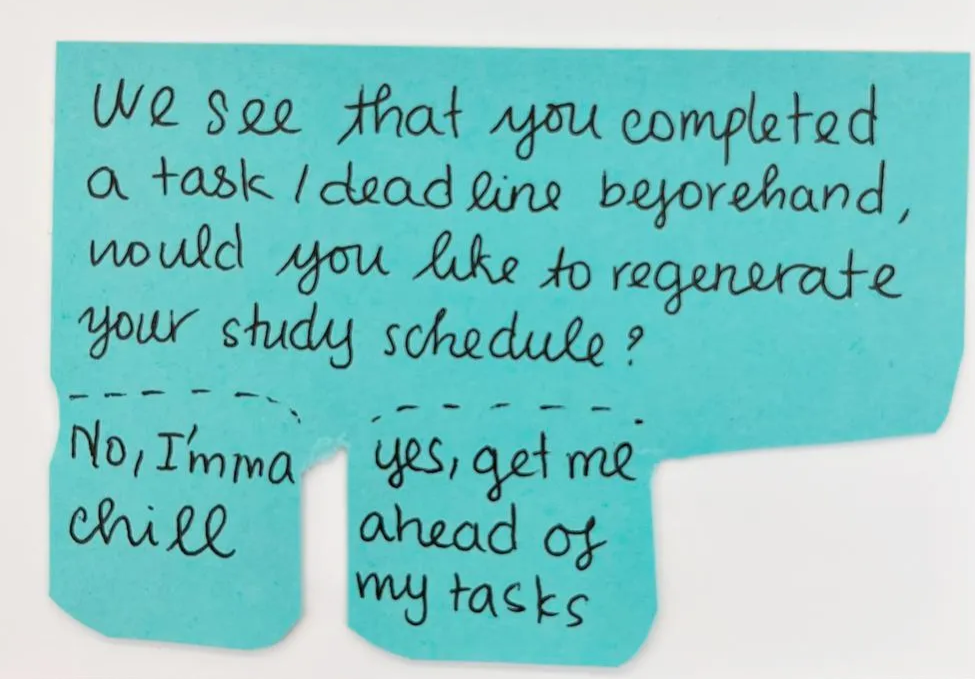 We see that you completed
a task / deadline beforehand,
would you like to regenerate
your study schedule?
No, I'mma
chill
yes, get me
ahead of
my tasks